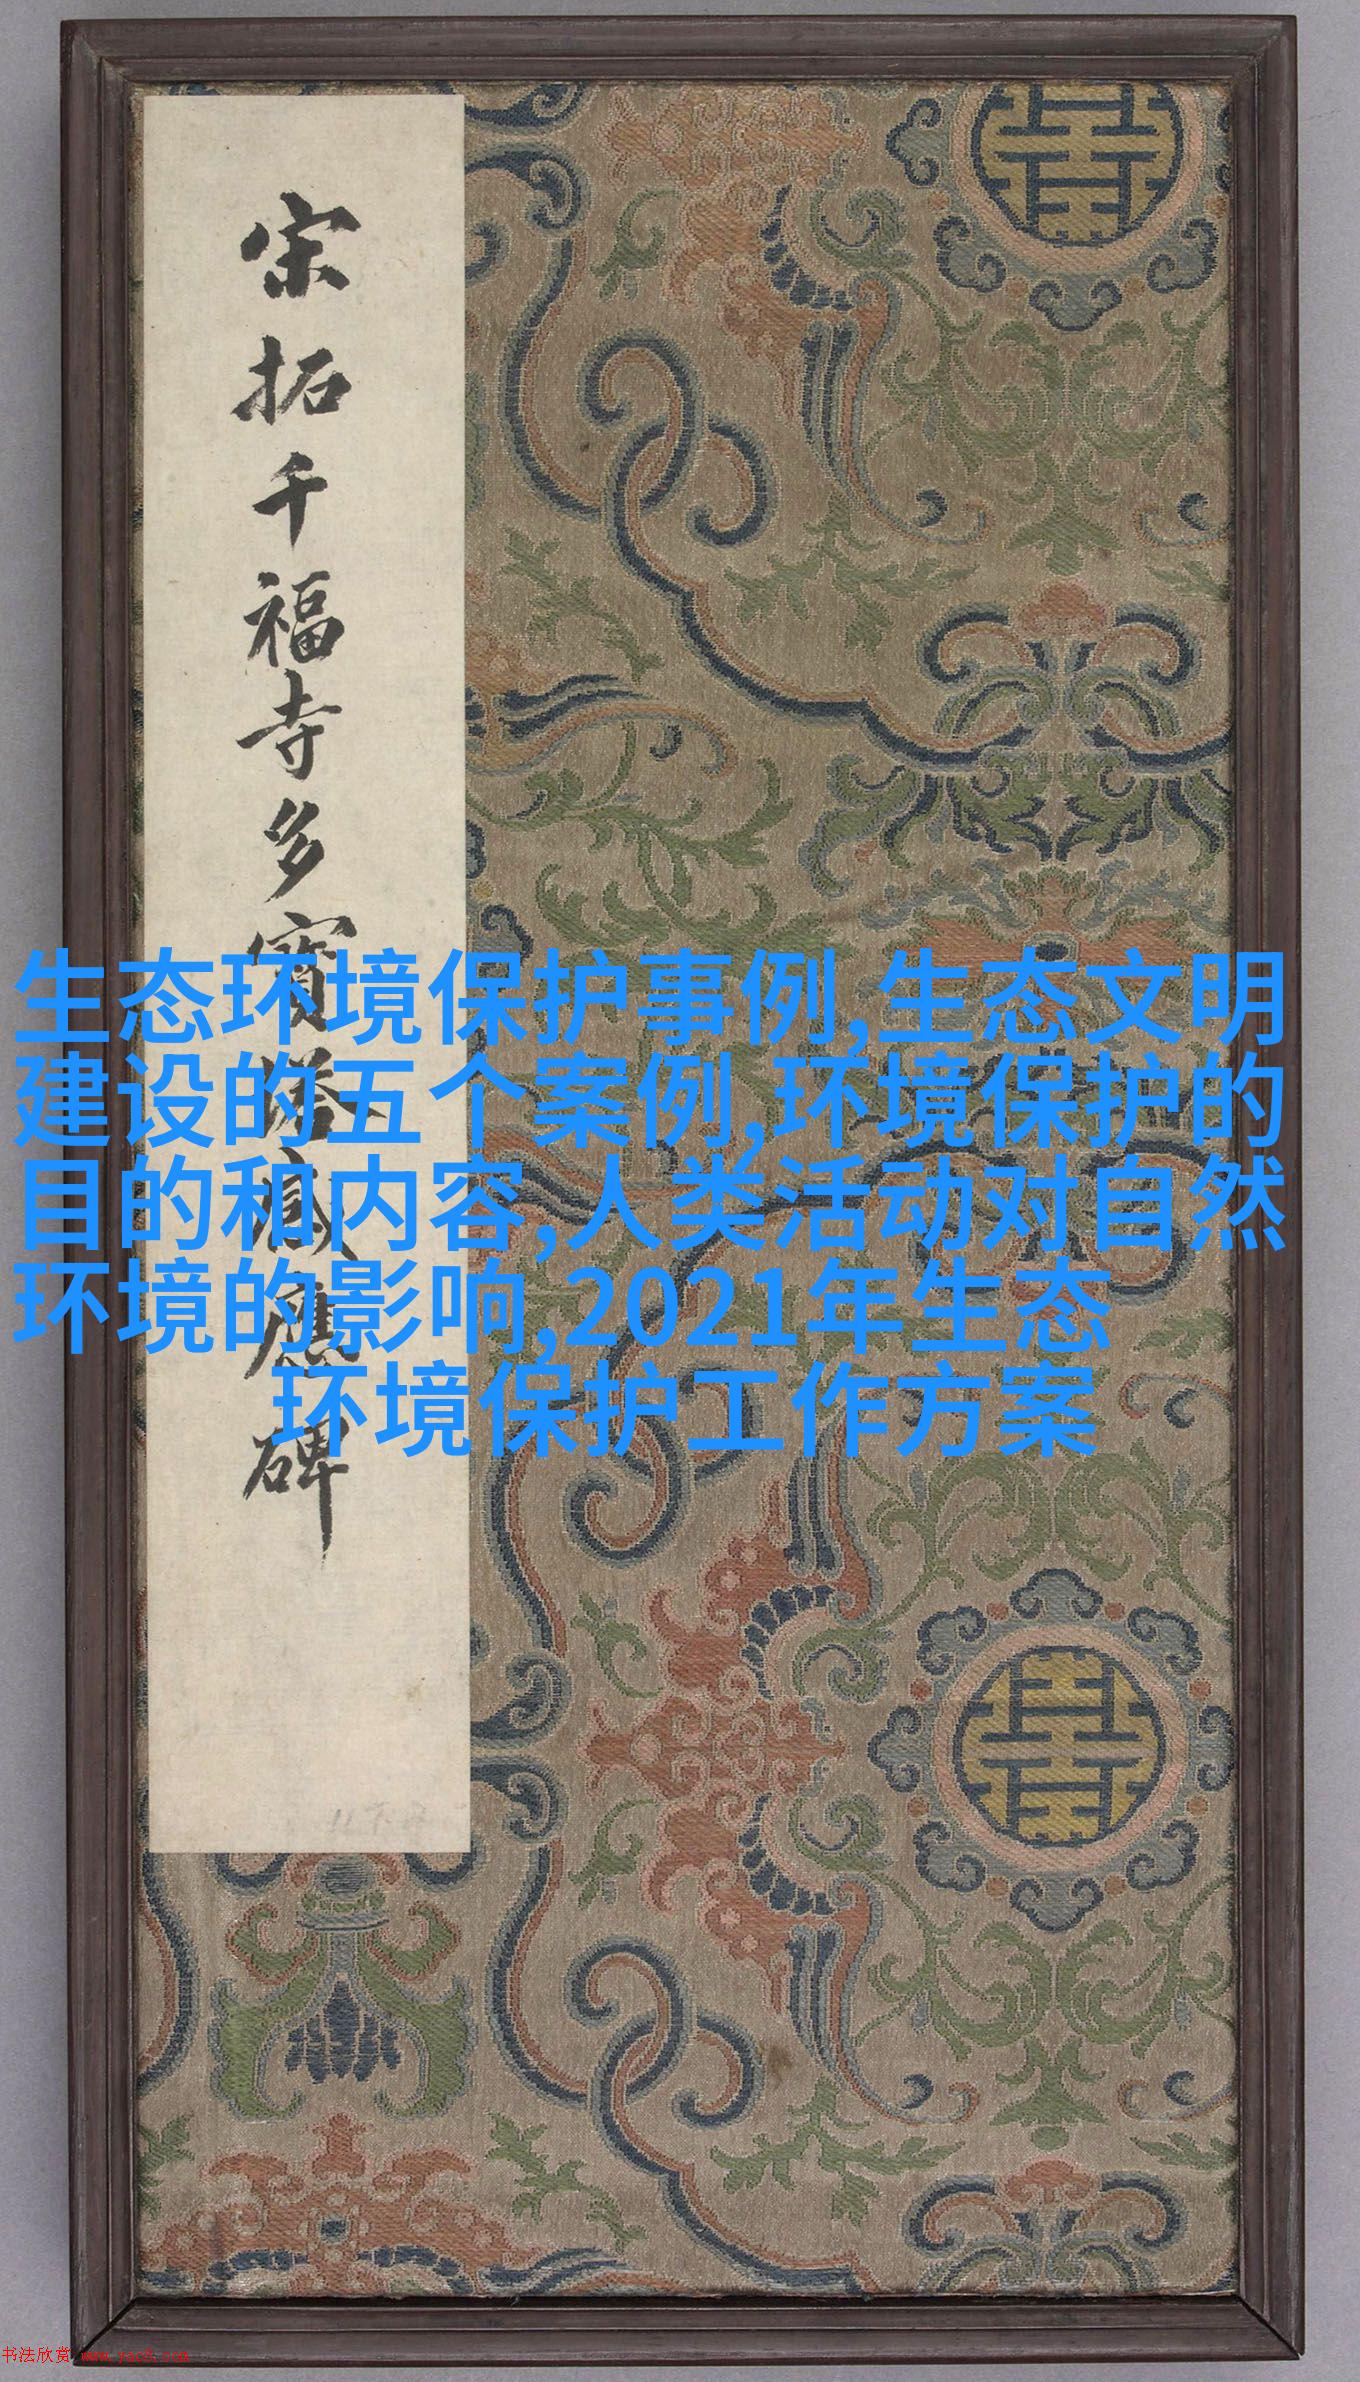 宋拓千福寺多寳塔感應碑
生态环境保护事例,生态文明
建设的五个案例,环境保护的
目的和内容,人类活动对自然
环境的影响,2021年生态
环境保护工作方案
书法欣赏 www.yac8.com